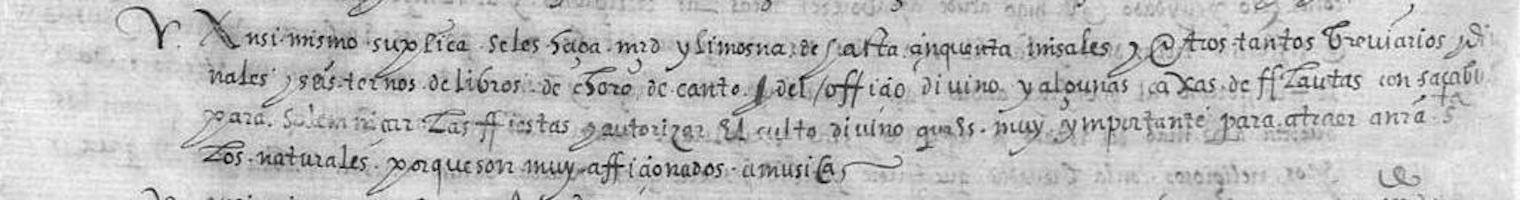 V. Ansi mismo suplica seles haga mrd y limosna de hasta çinquenta misales y otros tantos breviarios y di
nales y seis ternos de libros de choro de canto y del officio divino y algunas caxas de fflautas con sacabu
para solemnicar las ffiestas y autorizar el culto divino ques muy ymportante para atraer a nrã sta
los naturales porque son muy afficionados a musica